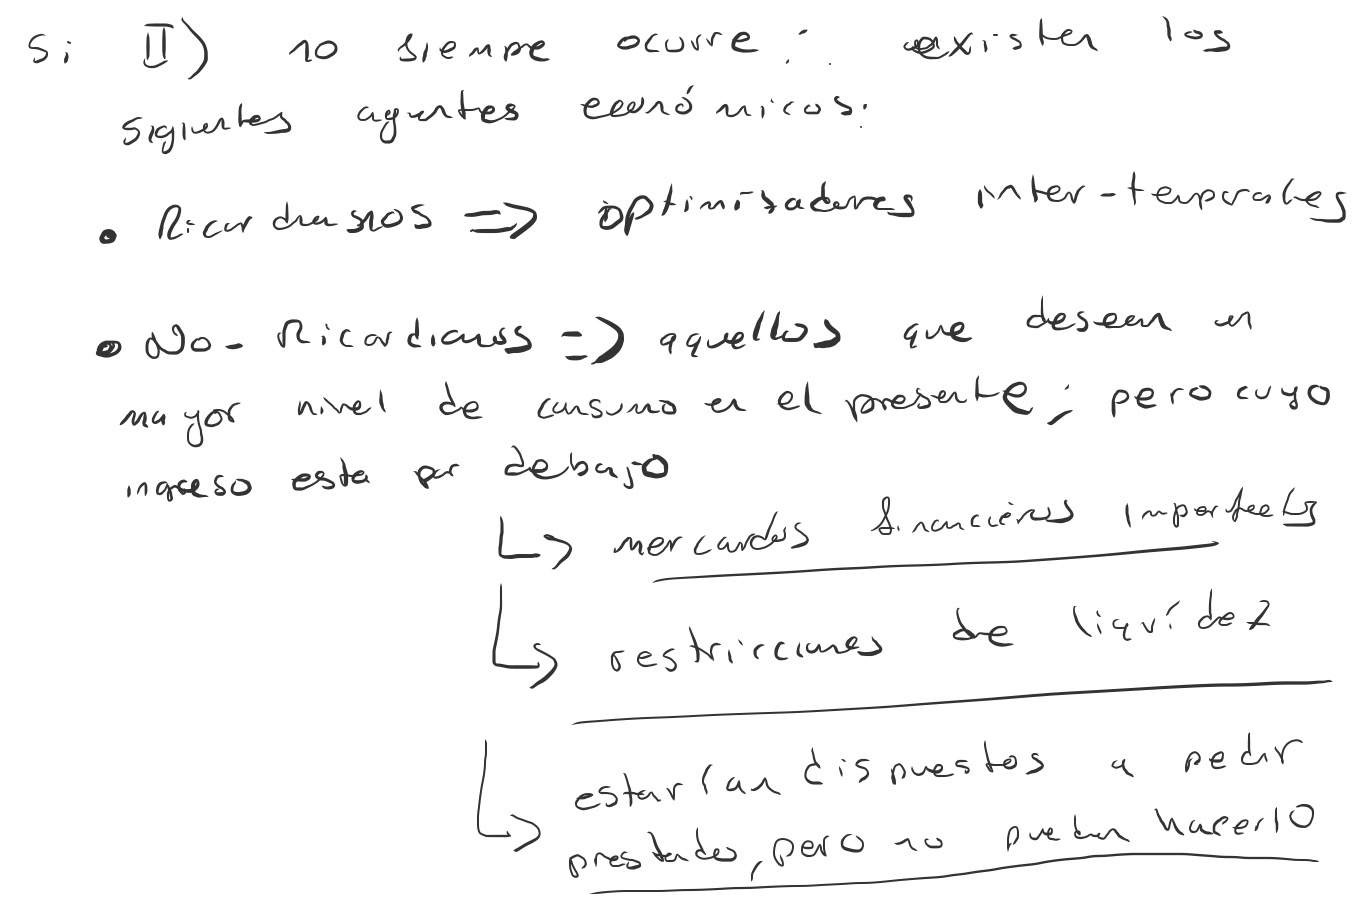 Si II) no siempre ocurre: existen los
siguientes agentes económicos:
• Ricardianos => optimizadores inter-temporales
• No-Ricardianos => aquellos que desean un
mayor nivel de consumo en el presente; pero cuyo
ingreso esta por debajo
↳ mercados financieros imperfectos
↳ restricciones de liquídez
↳ estarían dispuestos a pedir
prestado, pero no pueden hacerlo